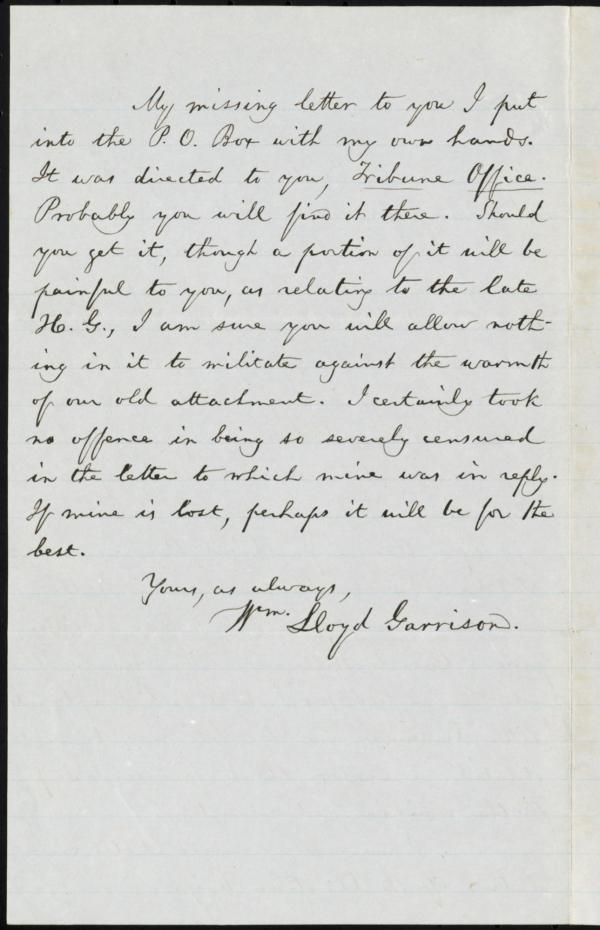 My missing letter to you I put
into the P. O. Box with my own hands.
It was directed to you, Tribune Office.
Probably you will find it there. Should
you get it, though a portion of it will be
painful to you, as relating to the late
H. G., I am sure you will allow noth-
ing in it to militate against the warmth
of our old attachment. I certainly took
no offence in being so severely censured
in the letter to which mine was in reply.
If mine is lost, perhaps it will be for the
best.
Yours, as always,
Wm. Lloyd Garrison.